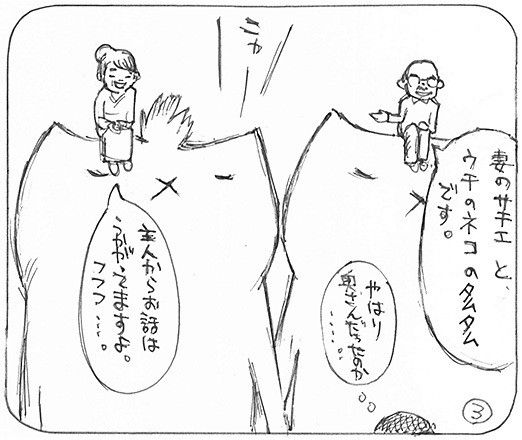 妻のサキエ と、
ウチのネコ のタムタム
です。
ニャ
ー
主人からお話は
うかがってますよ。
フフフ……。
やはり
奥さんだったのか
……。
③